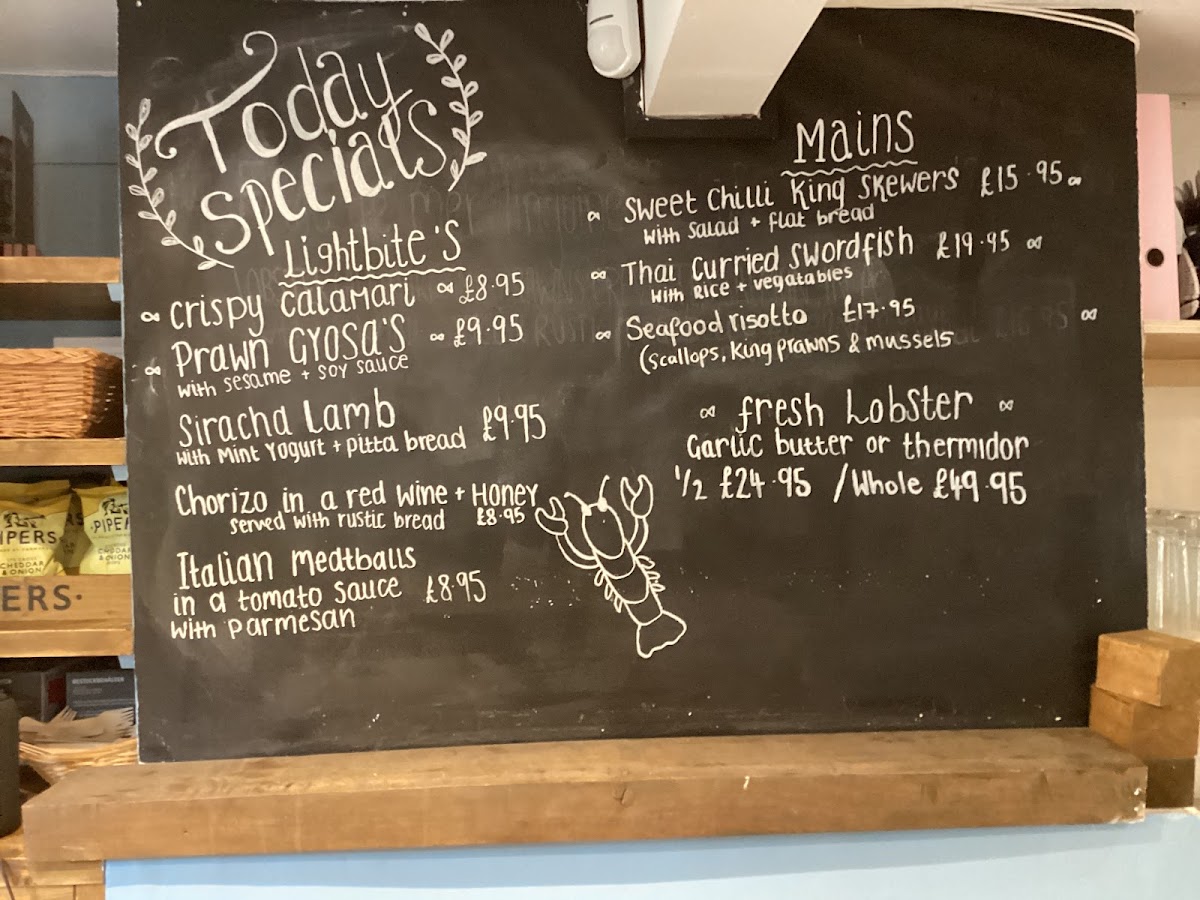 Today
Specials
Lightbite's
∞ Crispy Calamari ∞ £8.95
∞ Prawn GYOSA'S ∞ £9.95
with sesame + soy sauce
Siracha Lamb
with Mint Yogurt + pitta bread £9.95
Chorizo in a red wine + Honey
served with rustic bread £8.95
Italian Meatballs
in a tomato sauce £8.95
with parmesan
Mains
∞ Sweet Chilli King Skewers £15.95 ∞
with salad + flat bread
∞ Thai Curried Swordfish £19.95 ∞
with Rice + vegatables
∞ Seafood risotto £17.95 ∞
(scallops, King prawns & mussels
∞ fresh Lobster ∞
Garlic butter or thermidor
1/2 £24.95 /Whole £49.95
PIPERS
CHEDDAR
& ONION
PIPERS
CHEDDAR
& ONION
ERS.